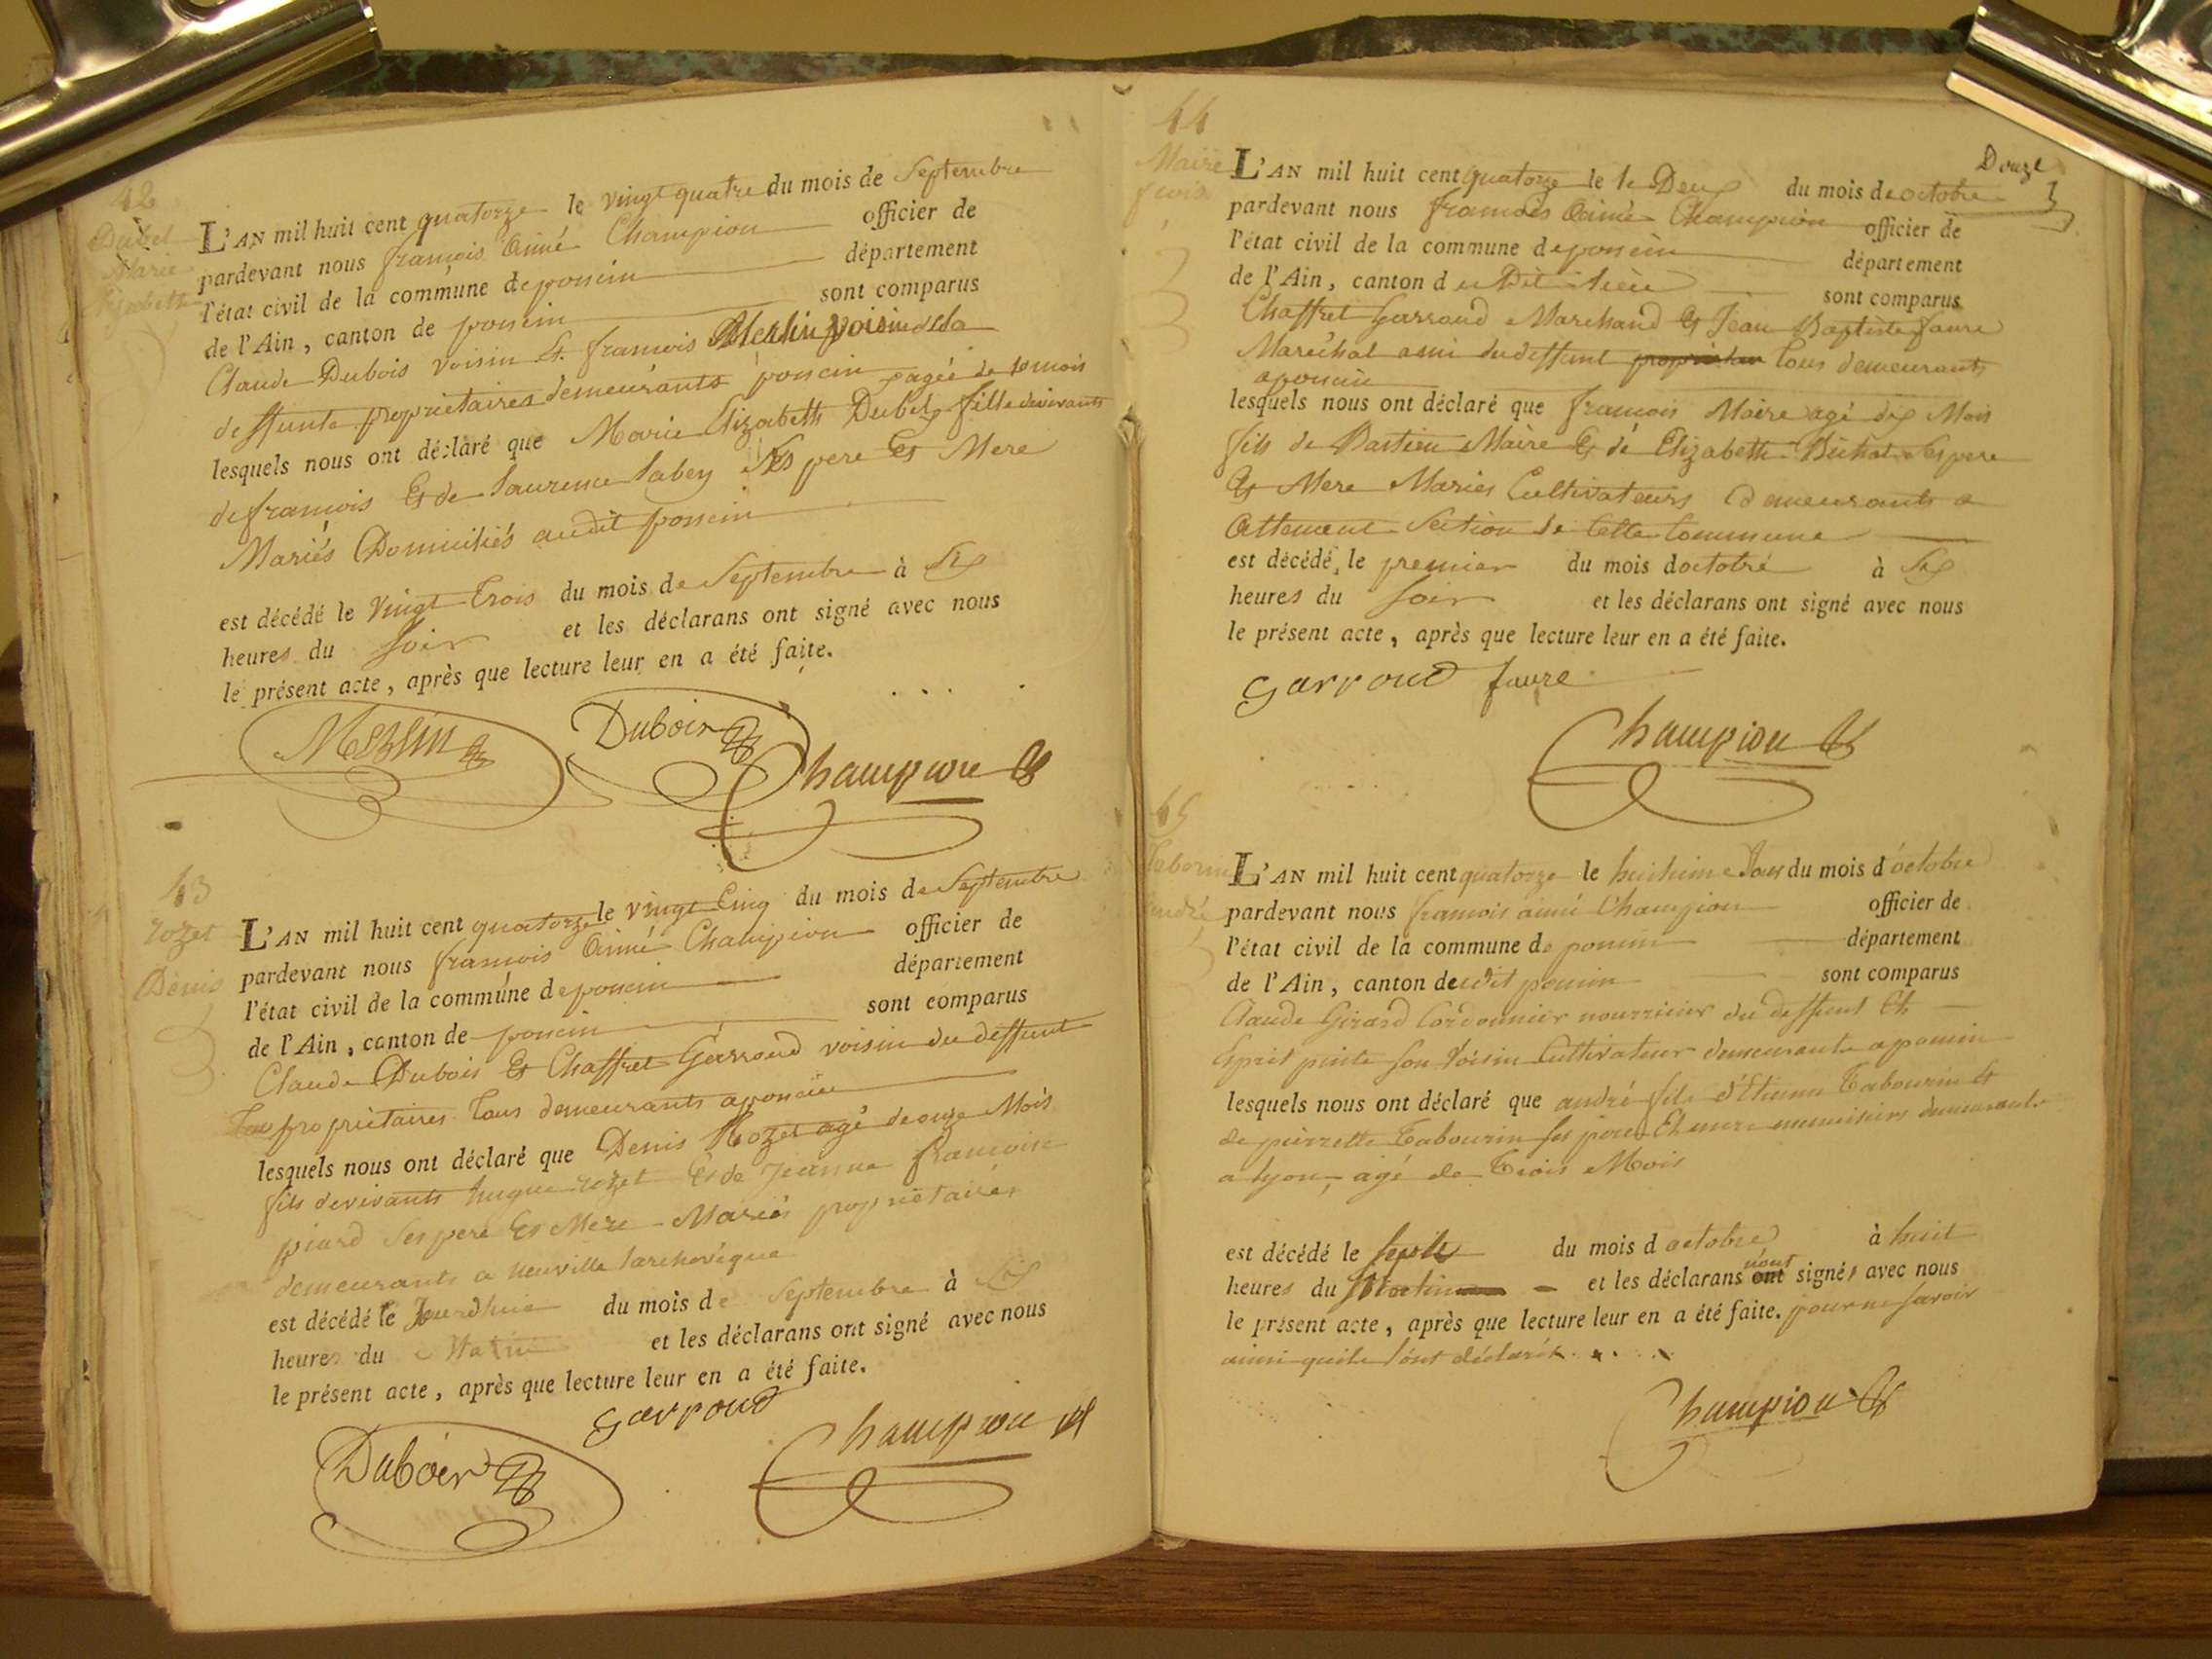 42
Dubel
Marie
Elizabeth
L'AN mil huit cent quatorze le vingt quatre du mois de Septembre
pardevant nous françois Aimé Champion officier de
l'état civil de la commune de poncin département
de l'Ain, canton de poncin sont comparus
Claude Dubois voisin Et françois Merlin voisin de la
deffunte propriétaires demeurants poncin
lesquels nous ont déclaré que Marie Elizabeth Dubel, agée de 10 mois fille de vivants
de françois Et de Laurence Labey Ses pere Et Mere
Mariés Domiciliés audit poncin
est décédé le vingt Trois du mois de Septembre à Six
heures du Soir et les déclarans ont signé avec nous
le présent acte, après que lecture leur en a été faite.
Merlin Dubois Champion
43
rozet
Denis
L'AN mil huit cent quatorze le vingt Cinq du mois de Septembre
pardevant nous françois Aimé Champion officier de
l'état civil de la commune de poncin département
de l'Ain, canton de poncin sont comparus
Claude Dubois Et Chaffret Garroud voisin du deffunt
propriétaires Tous demeurants a poncin
lesquels nous ont déclaré que Denis Rozet agé de onze Mois
fils de vivants hugue rozet Et de Jeanne françoise
piard Ses pere Et Mere Mariés propriétaires
demeurants a neuville Larchevêque
est décédé le Jourdhuie du mois de Septembre à Six
heures du Matin et les déclarans ont signé avec nous
le présent acte, après que lecture leur en a été faite.
Dubois Garroud Champion
44
Maire
fcois
Douze
L'AN mil huit cent quatorze le le Deux du mois de octobre
pardevant nous françois Aimé Champion officier de
l'état civil de la commune de poncin département
de l'Ain, canton du Dit lieu sont comparus
Chaffret Garroud Marchand Et Jean Baptiste faure
Maréchal ami du deffunt proprietaire Tous demeurants
a poncin
lesquels nous ont déclaré que françois Maire agé dix Mois
fils de Bastien Maire Et de Elizabeth Bichat Ses pere
Et Mere Mariés Cultivateurs demeurants a
Allement Section de Cette Commune
est décédé le premier du mois doctobre à Six
heures du Soir et les déclarans ont signé avec nous
le présent acte, après que lecture leur en a été faite.
Garroud faure
Champion
45
Tabourin
andré
L'AN mil huit cent quatorze le huitieme Jour du mois d'octobre
pardevant nous françois aimé Champion officier de
l'état civil de la commune de poncin département
de l'Ain, canton de udit poncin sont comparus
Claude Girard Cordonnier nourricier du deffunt Et
Esprit pinte son Voisin Cultivateur demeurants a poncin
lesquels nous ont déclaré que andré fils d'Etienne Tabourin Et
de pierrette Tabourin ses pere Et mere menuisiers demeurants
a Lyon, agé de Trois Mois
est décédé le Sept du mois d octobre à huit
heures du Matin et les déclarans ont nont signés avec nous
le présent acte, après que lecture leur en a été faite. pour ne savoir
ainsi quils lont déclarés.
Champion